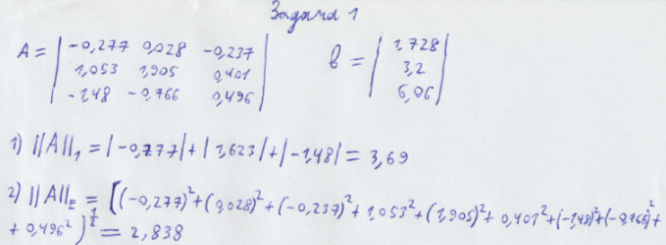 Задача 1
A = | -0,277 0,028 -0,237 | b = | 1,728 |
| 1,053 1,905 0,401 | | 3,2 |
| -1,48 -0,766 0,496 | | 6,06 |
1) ||A||₁ = |-0,277| + |1,623| + |-1,48| = 3,69
2) ||A||_E = [((-0,277)² + (0,028)² + (-0,237)² + 1,053² + (1,905)² + 0,401² + (-1,48)² + (-0,766)² +
+ 0,496²)^½ = 2,838